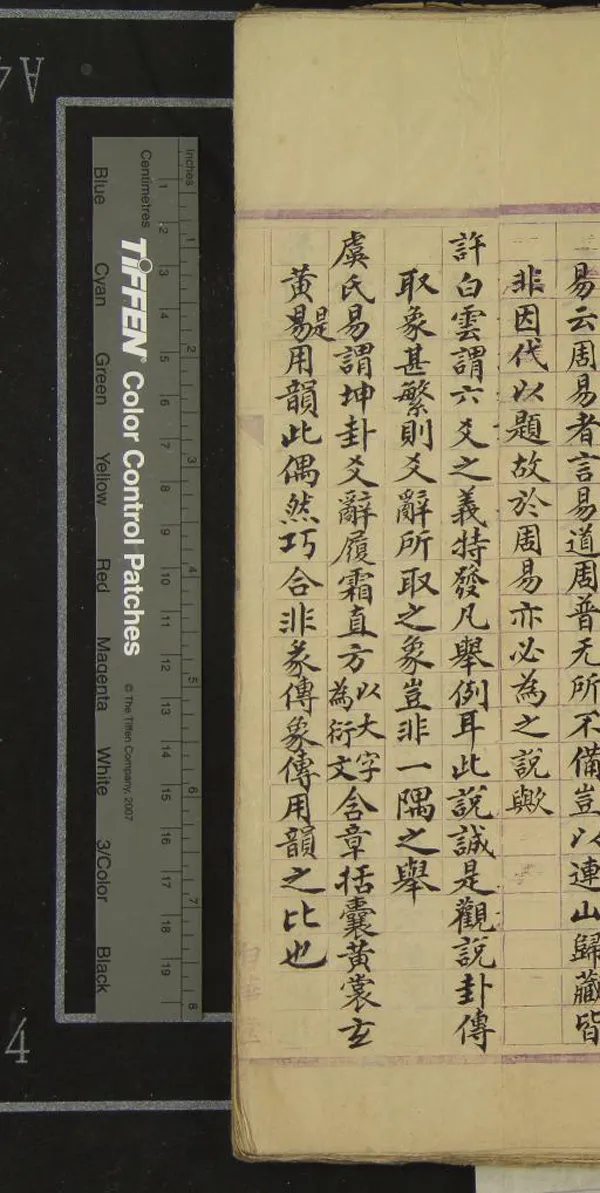 易云周易者言易道周普无所不備豈以連山歸藏皆
非因代以題故於周易亦必為之說歟
許白雲謂六爻之義特發凡舉例耳此說誠是觀說卦傳
取象甚繁則爻辭所取之象豈非一隅之舉
虞氏易謂坤卦爻辭履霜直方以大字為衍文含章括囊黃裳玄
黃易是用韻此偶然巧合非彖傳象傳用韻之比也
Inches
1 2 3 4 5 6 7 8
Centimetres
1 2 3 4 5 6 7 8 9 10 11 12 13 14 15 16 17 18 19
TIFFEN® Color Control Patches
© The Tiffen Company, 2007
Blue Cyan Green Yellow Red Magenta White 3/Color Black
A4
4